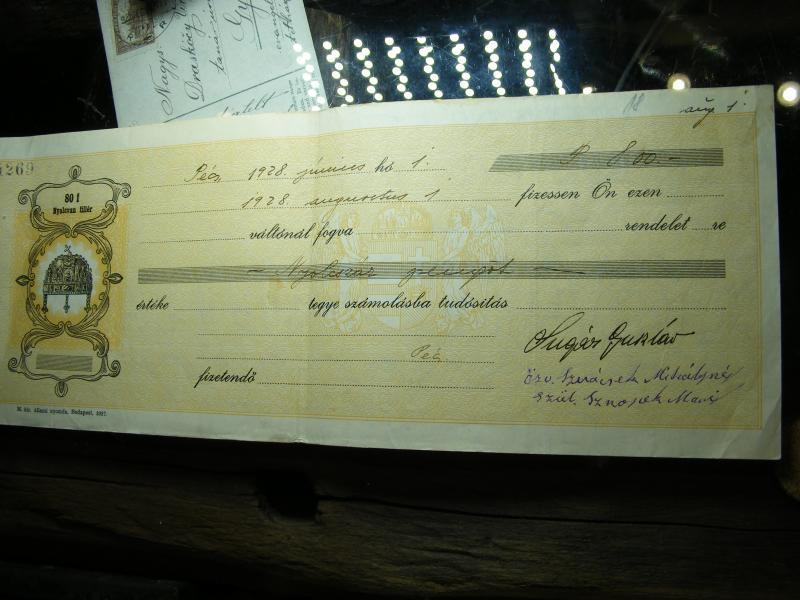 Nagys.
Draskóczy
1269
aug 1.
80 f
Nyolcvan fillér
Pécs, 1928. június hó 1.
P 800.-
1928. augusztus 1
fizessen Ön ezen
váltónál fogva
rendelet re
- Nyolcszáz pengőt -
értéke
tegye számolásba tudósitás
Pécs
Sugár Gusztáv
fizetendő
özv. Mihályné
szül. Sznopek Mária
M. kir. állami nyomda. Budapest, 1927.